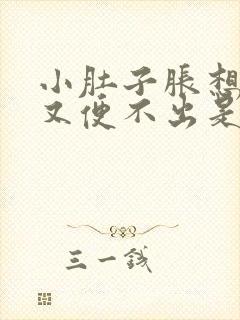 小肚子胀想
又便不出是
三一钱